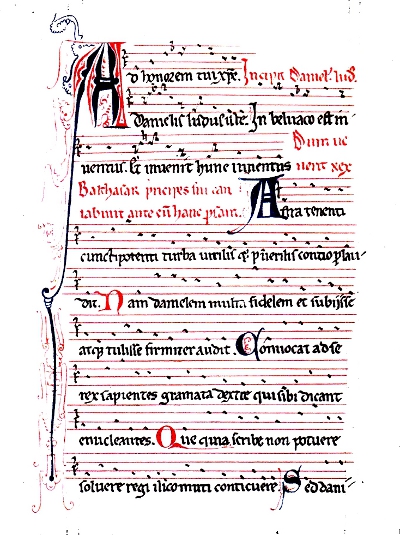 Ad honorem tui xp̄e. Incipit Daniel' lud'.
Danielis ludus iste. In beluaco est in
uentus. Et inuenit hunc iuuentus Dum ue
nerit rex
Balthasar principes sui can
tabunt ante eū hanc p̄sam. Astra tenenti
cunctipotenti turba uirilis q̄ p̄uerilis contio plau-
dit. Nam danielem multa fidelem et subiisse
atq̄ tulisse firmiter audit. Conuocat ad se
rex sapientes gramata dextre qui sibi dicant
enucleantes. Que quia scribe non potuere
soluere regi ilico muti conticuere. Sed dani-